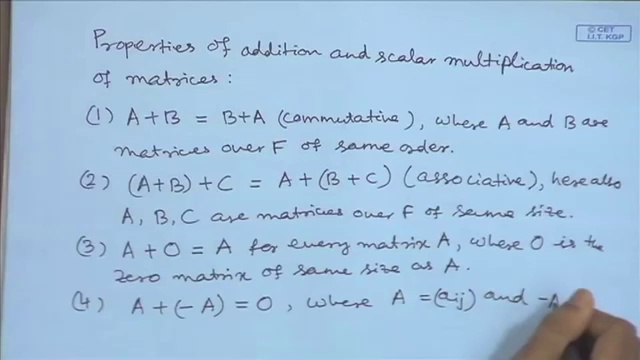 © CET
I.I.T. KGP
Properties of addition and scalar multiplication
of matrices :
(1) A+B = B+A (commutative), where A and B are
matrices over F of same order.
(2) (A+B)+C = A+(B+C) (associative), here also
A, B, C are matrices over F of same size.
(3) A+O = A for every matrix A, where O is the
zero matrix of same size as A.
(4) A+(-A) = O, where A = (aij) and -A